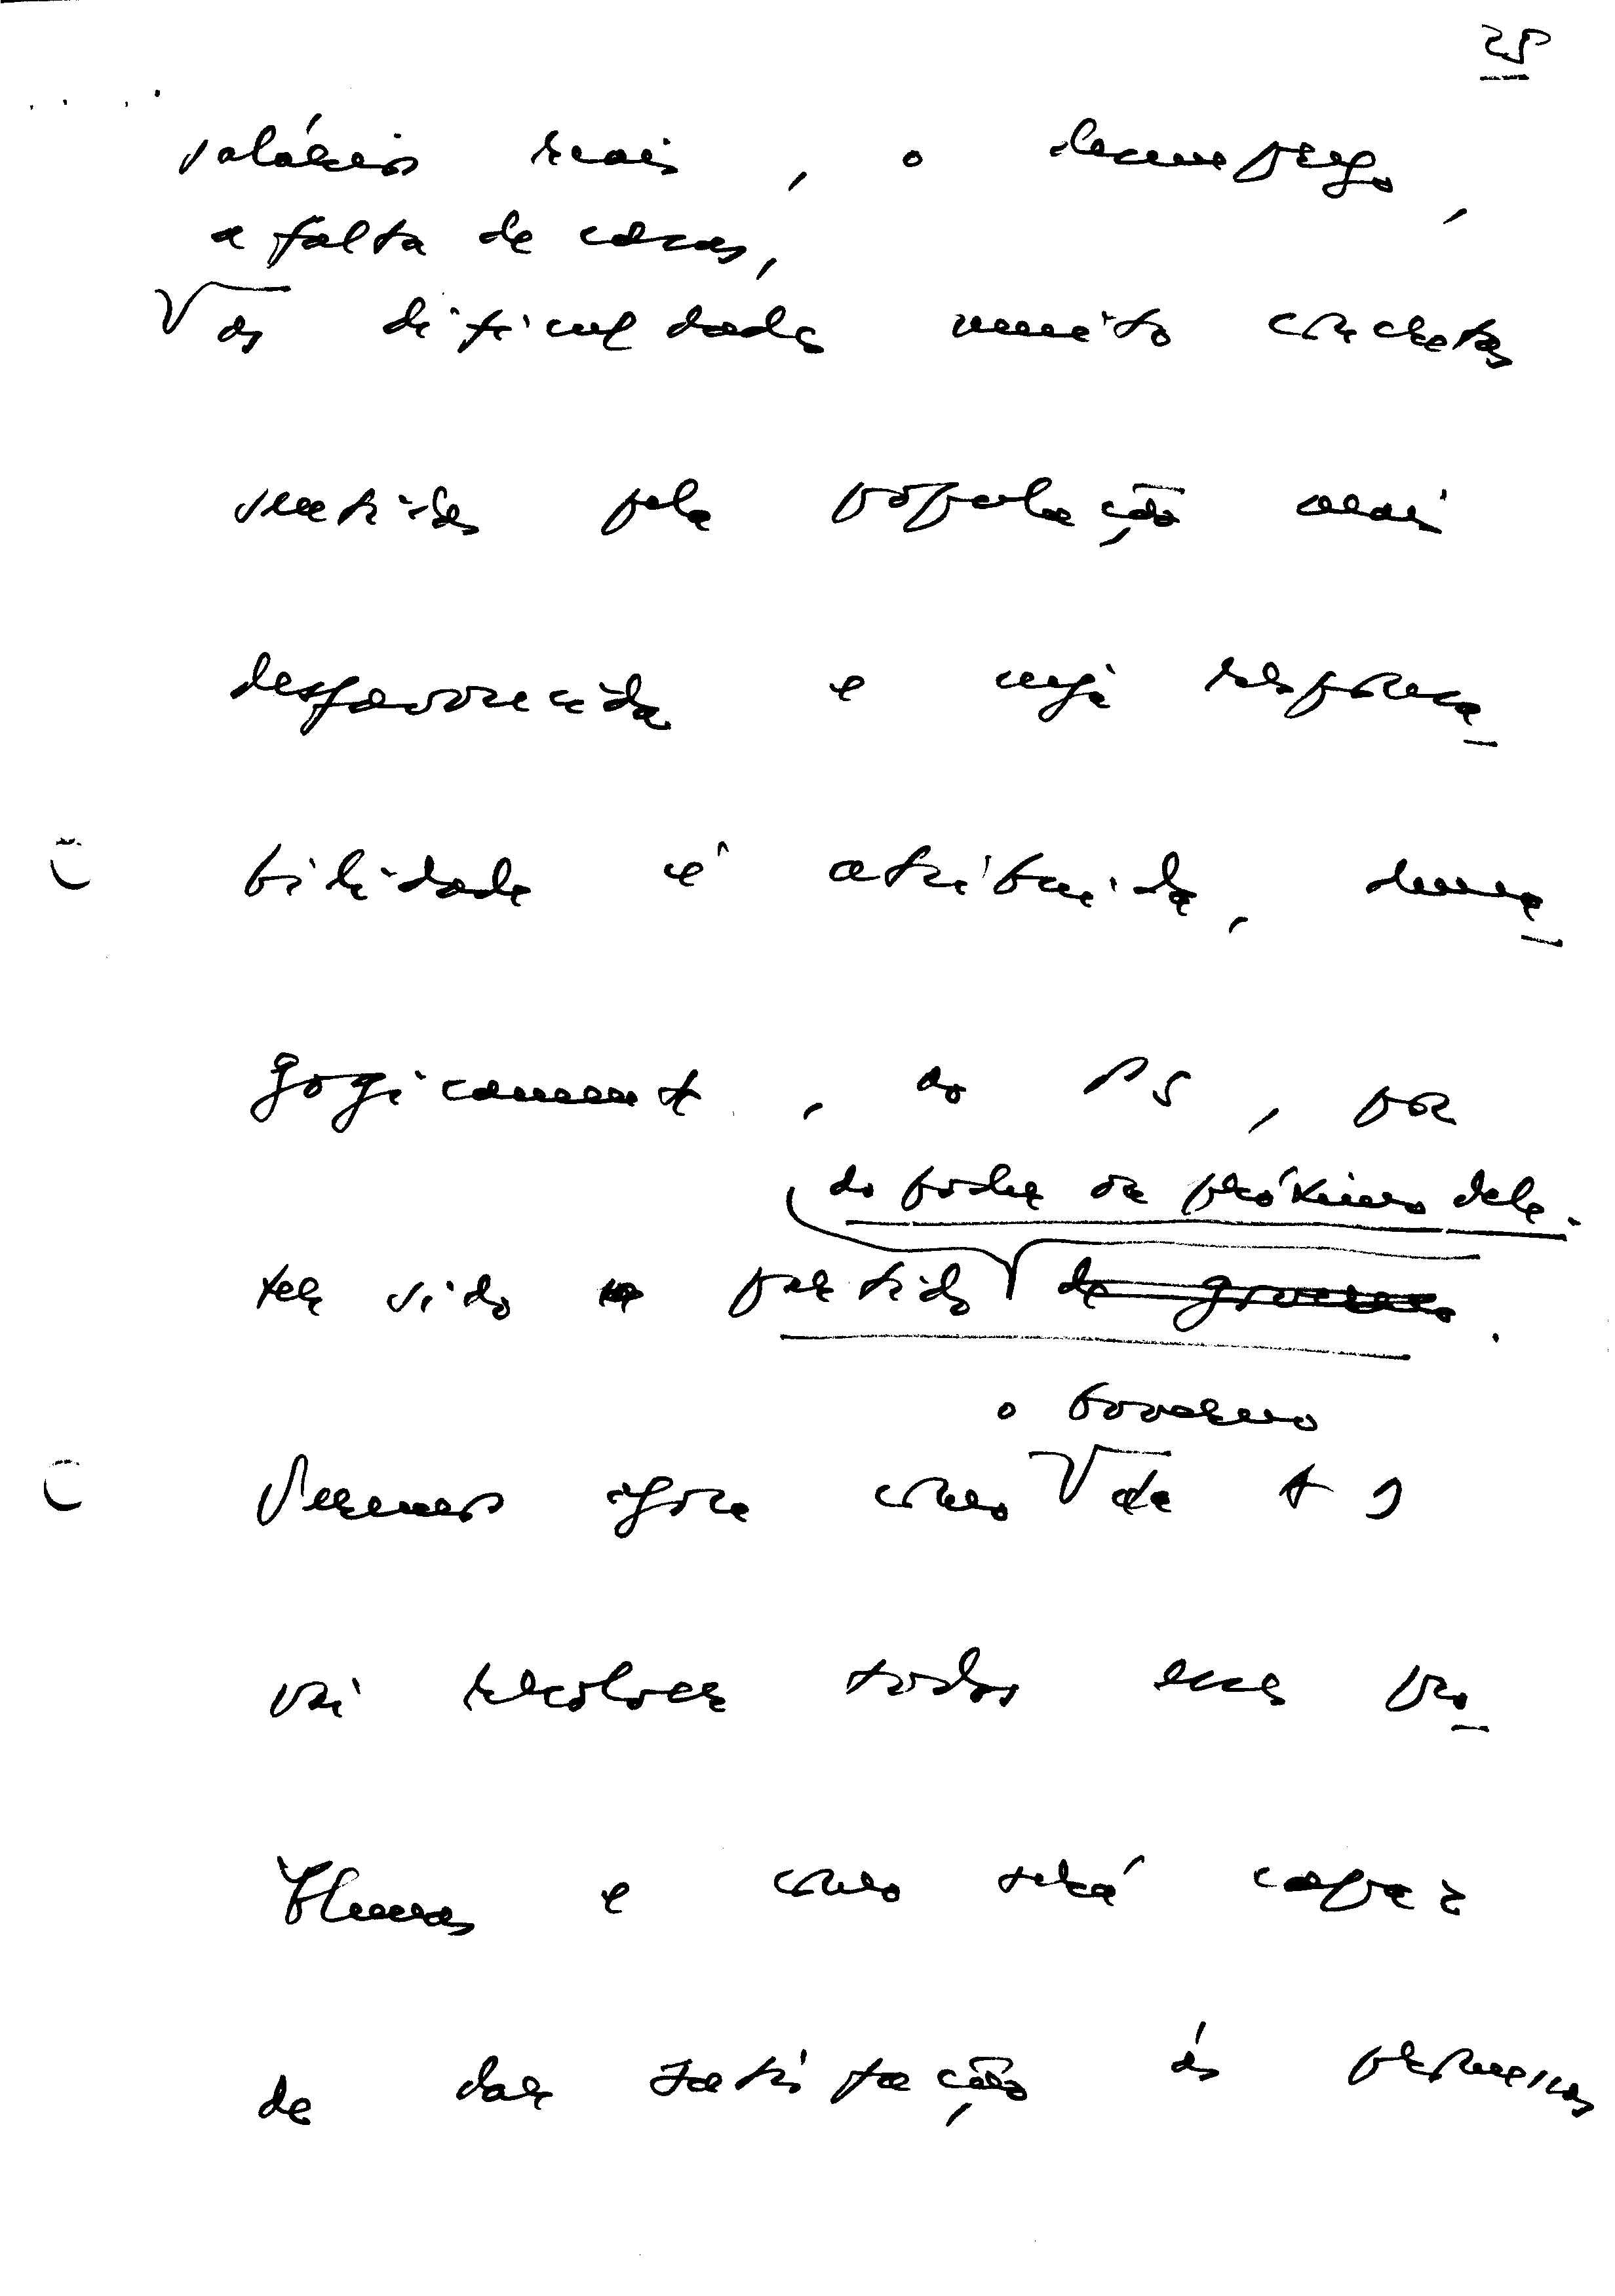 25
salários reais, o desemprego,
a falta de casas,
as dificuldades muito concretas
sentidas pela população mais
desfavorecida e cuja responsa_
bilidade é atribuída, dema_
gogicamente, ao PS, por
do poder ou próximo dele.
ter sido o partido do governo.
o Governo
Veremos agora como da AD
vai resolver todos esses pro_
blemas e como será capaz
de dar satisfação às promessas